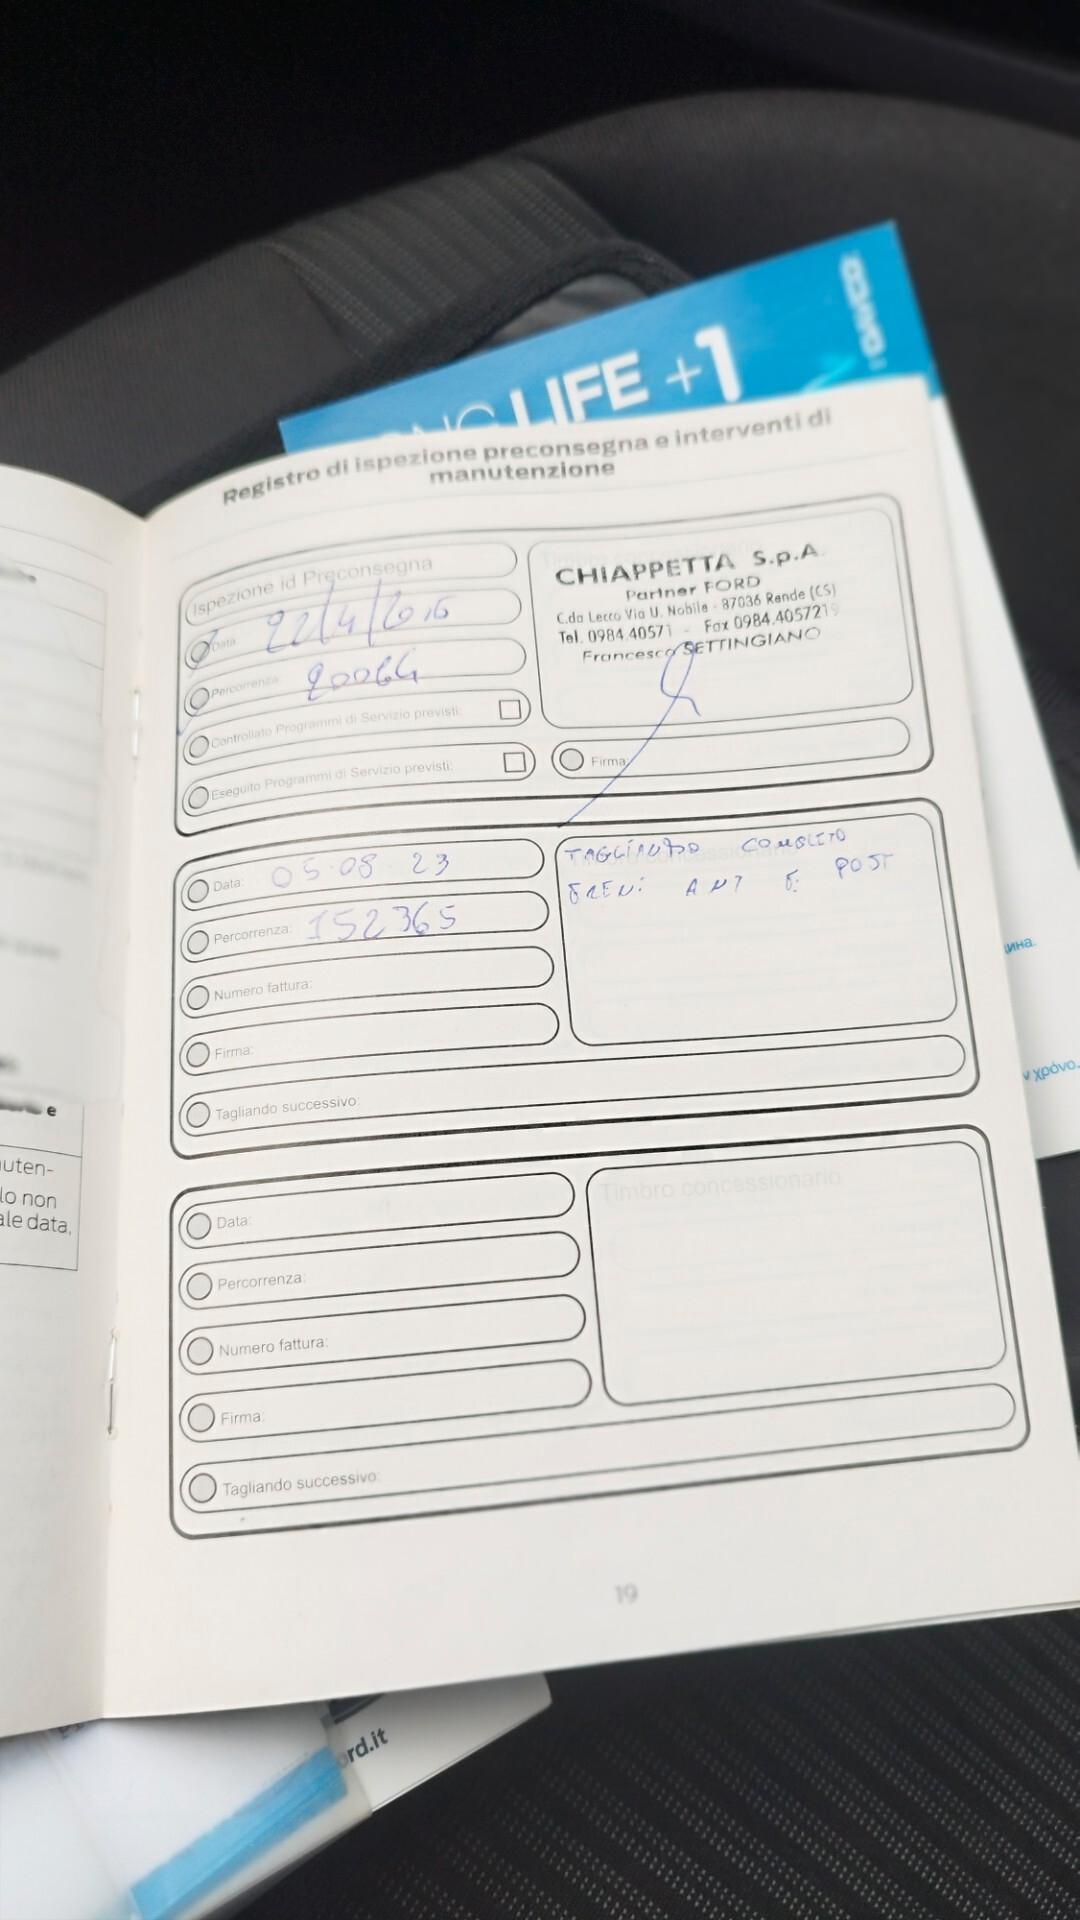 LIFE +1
Registro di ispezione preconsegna e interventi di
manutenzione
Ispezione id Preconsegna
Data:
Percorrenza:
Controllato Programmi di Servizio previsti:
Eseguito Programmi di Servizio previsti:
CHIAPPETTA S.p.A.
Partner FORD
C.da Lecco Via U. Nobile - 87036 Rende (CS)
Tel. 0984.40571 - Fax 0984.4057219
Francesco SETTINGIANO
Firma:
Data: 05.08.23
Percorrenza: 152365
Numero fattura:
Firma:
Tagliando successivo:
TAGGIANDO COMPLETO
FRENI ANT E POST
Data:
Percorrenza:
Numero fattura:
Firma:
Tagliando successivo:
Timbro concessionario
19
e
uten-
lo non
ale data,
ина.
ν χρόνο.
rd.it